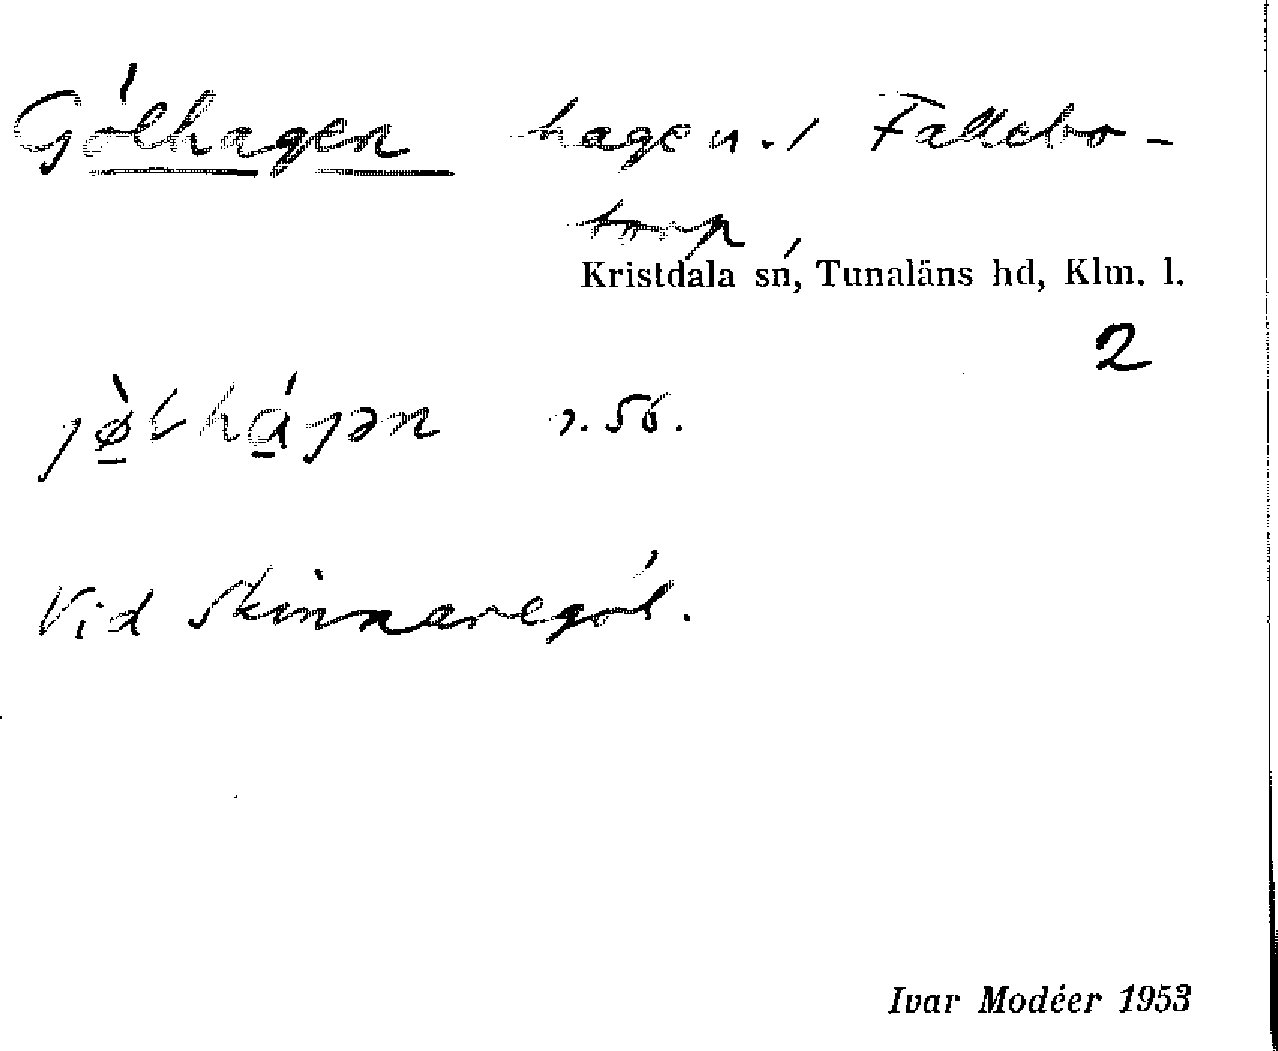 Gölhagen hagen i Fallebo-
torp
Kristdala sn, Tunaläns hd, Klm. l.
2
56.
Vid Skinnaregöl.
Ivar Modéer 1953